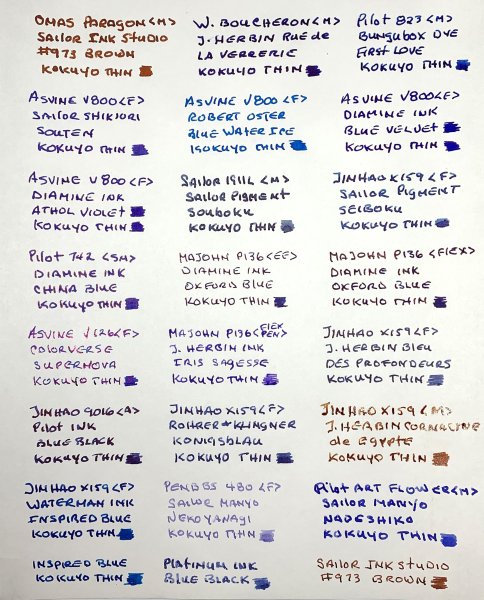 OMAS PARAGON <M>
SAILOR INK STUDIO
#973 BROWN
KOKUYO THIN
W. BOUCHERON <M>
J. HERBIN RUE de
LA VERRERIE
KOKUYO THIN
Pilot 823 <M>
BUNGUBOX DYE
FIRST LOVE
KOKUYO THIN
ASVINE V800 <F>
SAILOR SHIKIORI
SOUTEN
KOKUYO THIN
ASVINE V800 <F>
ROBERT OSTER
BLUE WATER ICE
KOKUYO THIN
ASVINE V800 <F>
DIAMINE INK
BLUE VELVET
KOKUYO THIN
ASVINE V800 <F>
DIAMINE INK
ATHOL VIOLET
KOKUYO THIN
SAILOR 1911L <M>
SAILOR PIGMENT
SOUBOKU
KOKUYO THIN
JINHAO X159 <F>
SAILOR PIGMENT
SEIBOKU
KOKUYO THIN
Pilot 742 <SM>
DIAMINE INK
CHINA BLUE
KOKUYO THIN
MAJOHN P136 <EF>
DIAMINE INK
OXFORD BLUE
KOKUYO THIN
MAJOHN P136 <FLEX>
DIAMINE INK
OXFORD BLUE
KOKUYO THIN
ASVINE V126 <F>
COLORVERSE
SUPERNOVA
KOKUYO THIN
MAJOHN P136 <FLEX PEN>
J. HERBIN INK
IRIS SAGESSE
KOKUYO THIN
JINHAO X159 <F>
J. HERBIN BLEU
DES PROFONDEURS
KOKUYO THIN
JINHAO 9016 <A>
Pilot INK
BLUE BLACK
KOKUYO THIN
JINHAO X159 <F>
ROHRER + KLINGNER
KONIGSBLAU
KOKUYO THIN
JINHAO X159 <M>
J. HERBIN CORNALINE
de EGYPTE
KOKUYO THIN
JINHAO X159 <F>
WATERMAN INK
INSPIRED BLUE
KOKUYO THIN
PENBBS 480 <F>
SAILOR MANYO
NEKOYANAGI
KOKUYO THIN
Pilot ART FLOWER <M>
SAILOR MANYO
NADESHIKO
KOKUYO THIN
INSPIRED BLUE
KOKUYO THIN
PLATINUM INK
BLUE BLACK
SAILOR INK STUDIO
#973 BROWN